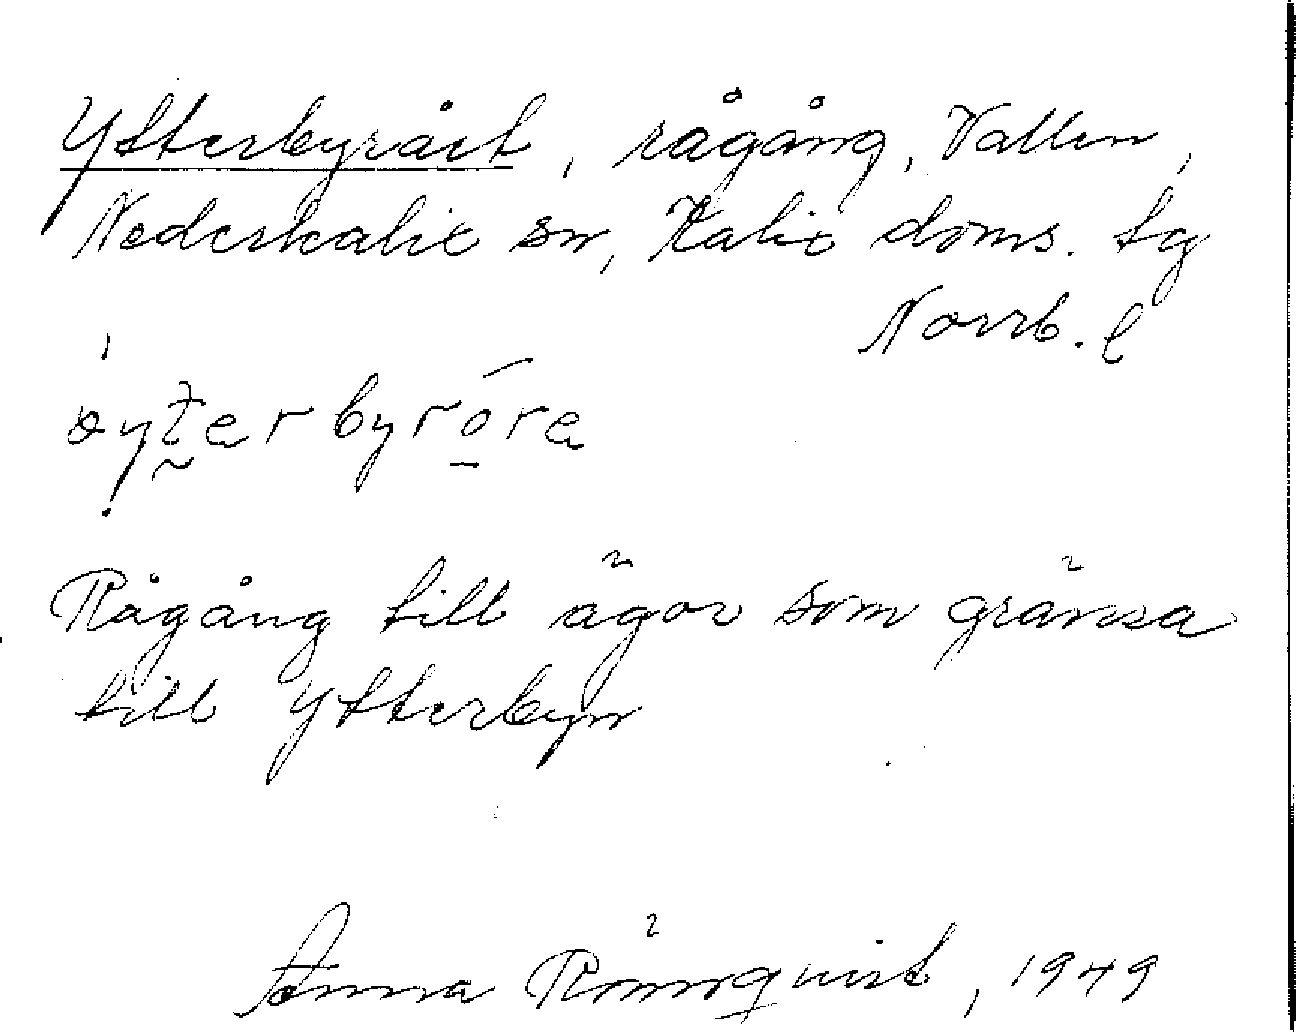 Ytterbyrået, rågång, Vallen,
Nederkalix sn, Kalix doms. tg
Norrb. l
åyterbyróra
Rågång till ägor som gränsa
till Ytterbyn
Anna Römqvist, 1949